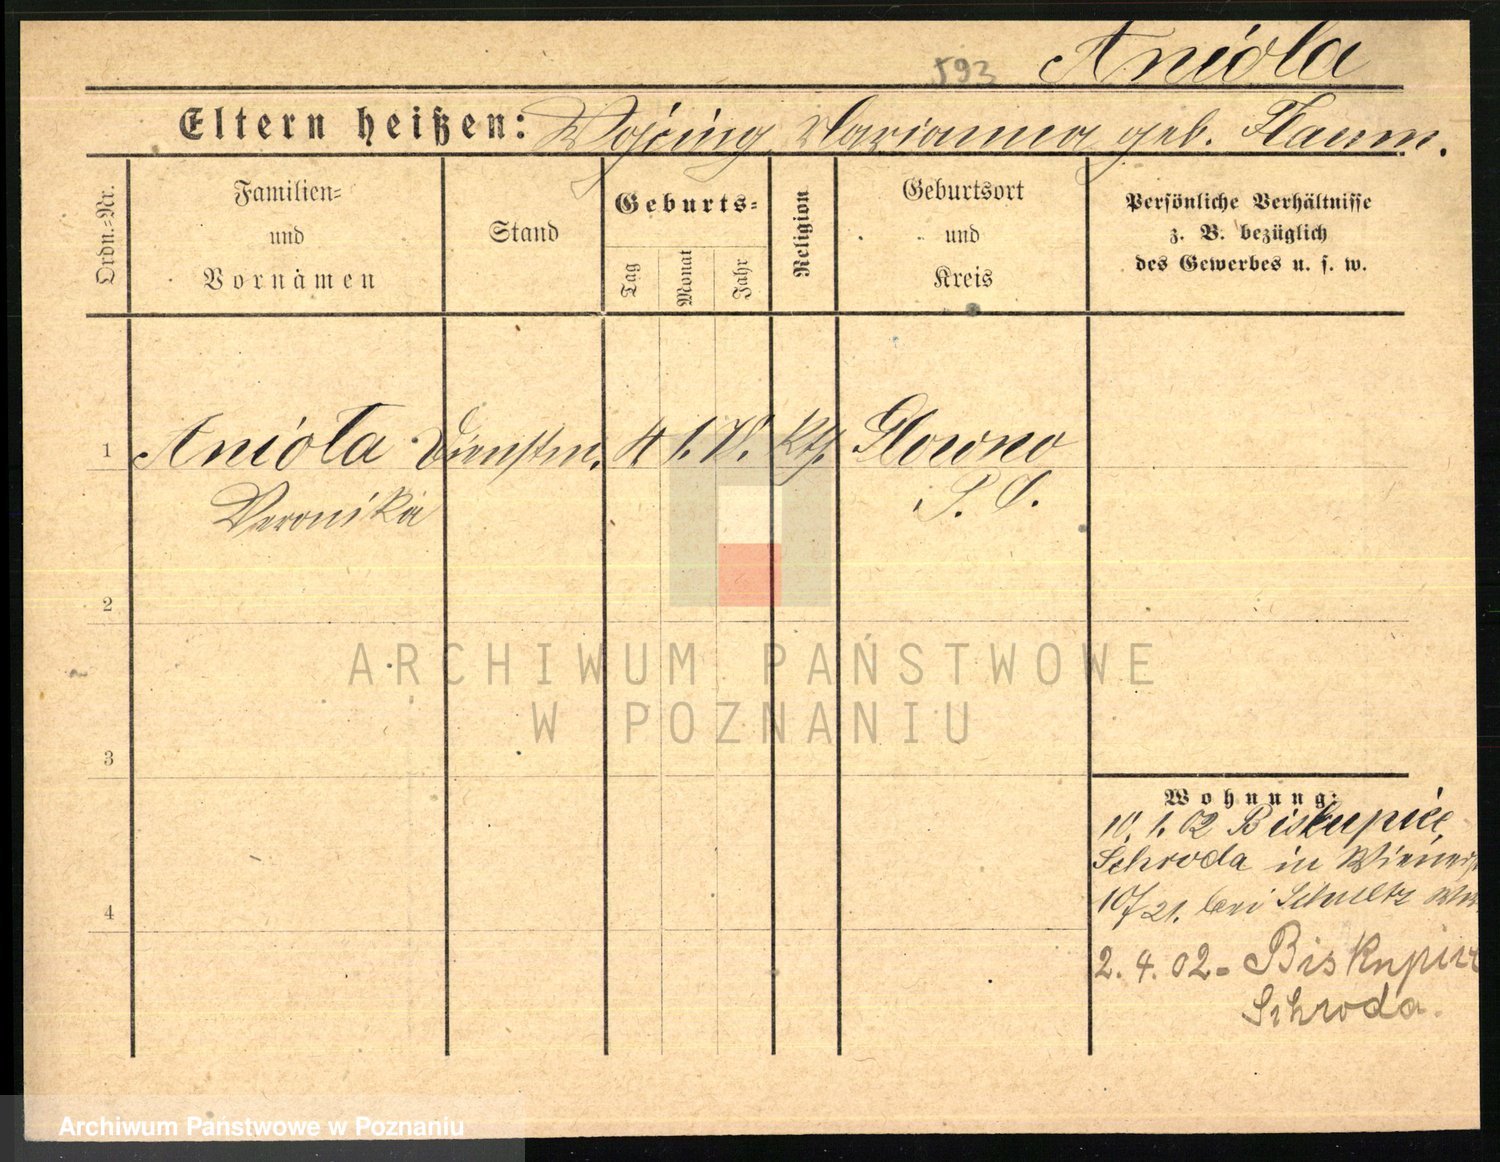 593 Anioła
Eltern heißen: Marianna geb.
Ordn.-Nr.
Familien-
und
Vornamen
Stand
Geburts-
Tag
Monat
Jahr
Religion
Geburtsort
und
Kreis
Persönliche Verhältnisse
z. B. bezüglich
des Gewerbes u. s. w.
1 Anioła Dienstm. 4 1. Kth. Glowno
Veronika P. O.
2
ARCHIWUM PAŃSTWOWE
W POZNANIU
3
Wohnung:
10. 1. 02 Biskupice,
Schroda in
10/21. bei Schultz
4
2. 4. 02 - Biskupice
Schroda.
Archiwum Państwowe w Poznaniu